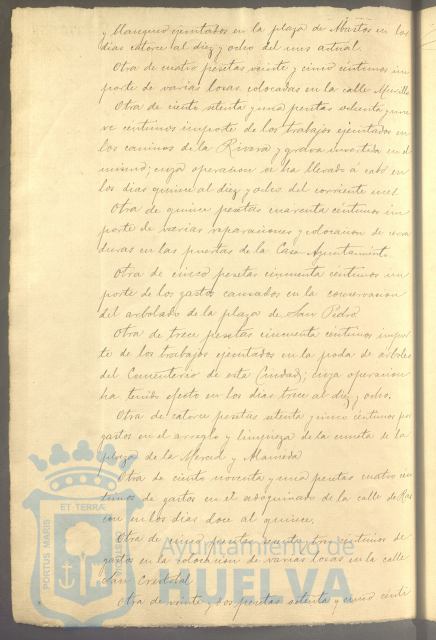 y blanqueo ejecutados en la plaza de Martos en los
dias catorce al diez y ocho del mes actual.
Otra de cuatro pesetas veinte y cinco céntimos im
porte de varias losas colocadas en la calle Murillo
Otra de ciento setenta y una pesetas ochenta y nue
ve centimos importe de los trabajos ejecutados en
los caminos de la Rivera y grava invertida en el
mismo; cuya operacion se ha llevado á cabo en
los dias quince al diez y ocho del corriente mes
Otra de quince pesetas cuarenta céntimos im
porte de varias reparaciones y colocacion de cerra
duras en las puertas de la Casa Ayuntamiento.
Otra de cinco pesetas cincuenta centimos im
porte de los gastos causados en la conservacion
del arbolado de la plaza de San Pedro
Otra de trece pesetas cincuenta centimos impor
te de los trabajos ejecutados en la poda de árboles
del Cementerio de esta Ciudad; cuya operacion
ha tenido efecto en los dias trece al diez y ocho.
Otra de catorce pesetas setenta y cinco céntimos por
gastos en el arreglo y limpieza de la cuneta de la
plaza de la Merced y Alameda
Otra de ciento noventa y una pesetas cuatro cen
timos de gastos en el adoquinado de la calle de Ras
con en los dias doce al quince.
Otra de cinco pesetas sesenta y tres centimos de
gastos en la colocacion de varias losas en la calle
San Cristobal
Otra de veinte y dos pesetas setenta y cinco centi
PORTUS MARIS
ET TERRÆ
CUSTODIA
Ayuntamiento de
HUELVA